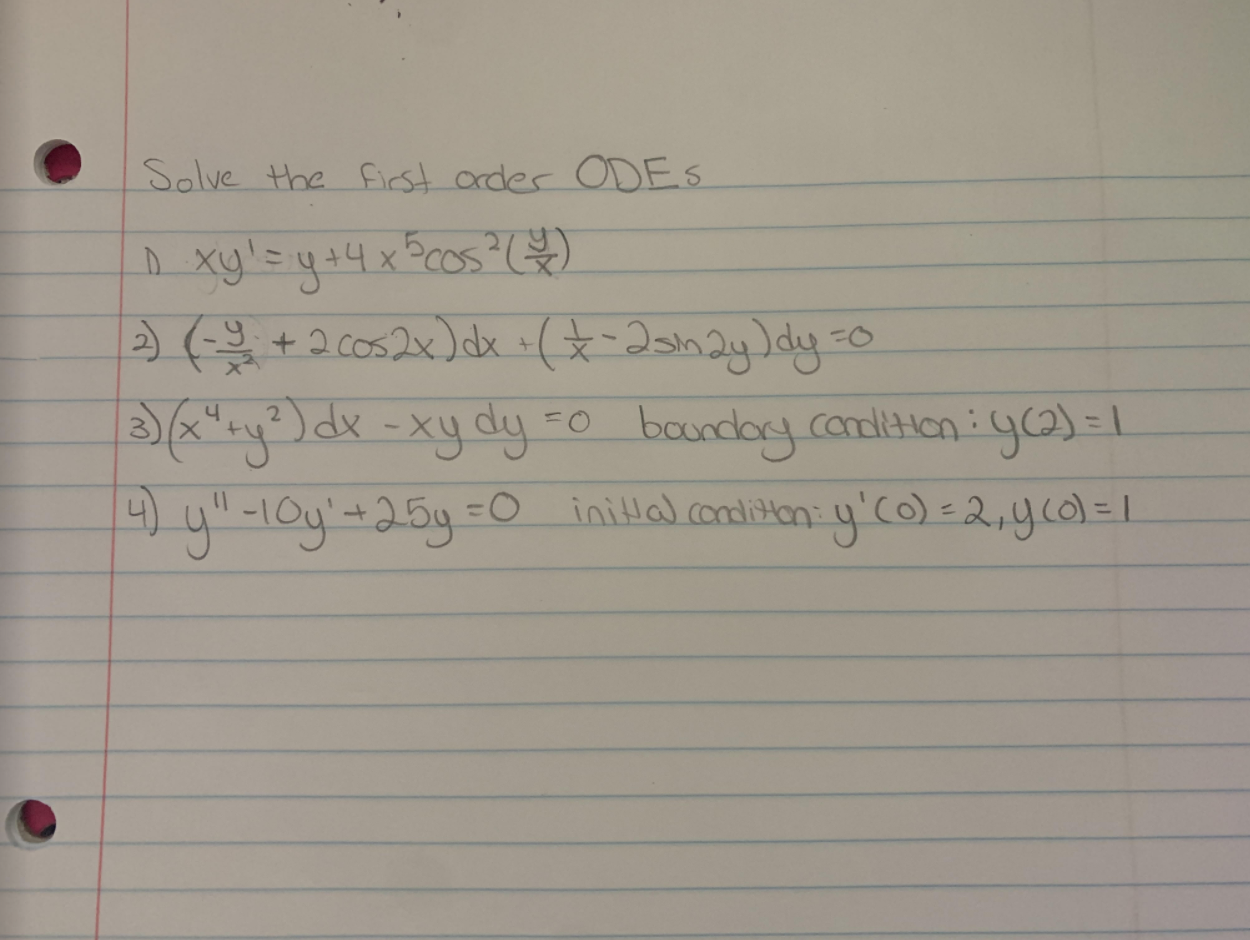 Solve the first order ODEs
1) xy' = y + 4x⁵cos²(y/x)
2) (-y/x² + 2cos2x)dx + (1/x - 2sin2y)dy = 0
3) (x⁴+y²)dx - xy dy = 0 boundary condition: y(2) = 1
4) y'' - 10y' + 25y = 0 initial condition: y'(0) = 2, y(0) = 1